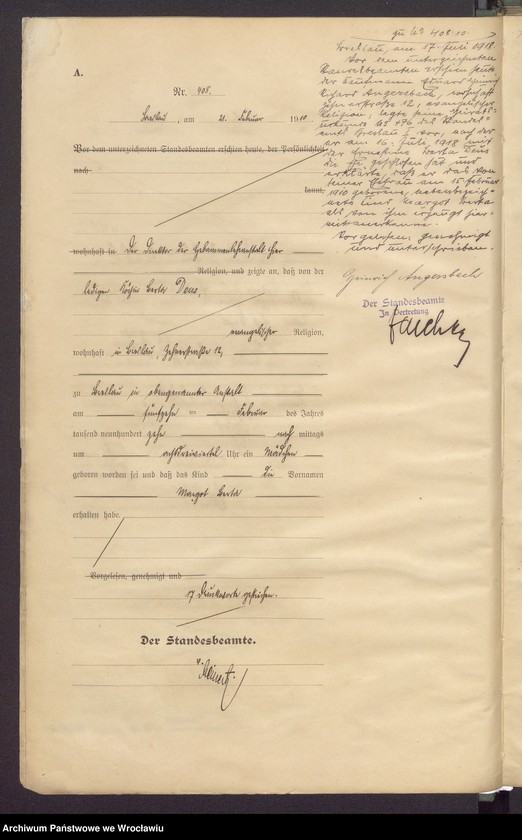 A.
Nr. 408.
Breslau, am 21. Februar 1910
Vor dem unterzeichneten Standesbeamten erschien heute, der Persönlichkeit
nach
kannt,
wohnhaft in Der Direktor der Hebammenlehranstalt hier
Religion, und zeigte an, daß von der
ledigen Köchin Berta Deus,
evangelischer Religion,
wohnhaft in Breslau,
zu Breslau in obengenannter Anstalt
am fünfzehn ten Februar des Jahres
tausend neunhundert zehn nach mittags
um Uhr ein Mädchen
geboren worden sei und daß das Kind die Vornamen
Margot Berta
erhalten habe.
Vorgelesen, genehmigt und
17 Druckworte gestrichen.
Der Standesbeamte.
zu No 408.10.
Breslau, am 17. Juli 1918.
Vor dem unterzeichneten
Standesbeamten erschien heute
der Kaufmann Eduard Heinrich
Richard Angersbach, wohnhaft
12, evangelischer
Religion, legte seine Heirats-
urkunde des Standes-
amts Breslau I vor, nach der
er am 16. Juli 1918 mit
der Berta Deus
die Ehe geschlossen hat und
erklärte, daß er das von
seiner Ehefrau am 15. Februar
1910 geborene, nebenbezeich-
nete Kind Margot Berta
als von ihm erzeugt hier-
mit anerkenne.
Vorgelesen, genehmigt
und unterschrieben.
Heinrich Angersbach
Der Standesbeamte
In Vertretung
Archiwum Państwowe we Wrocławiu